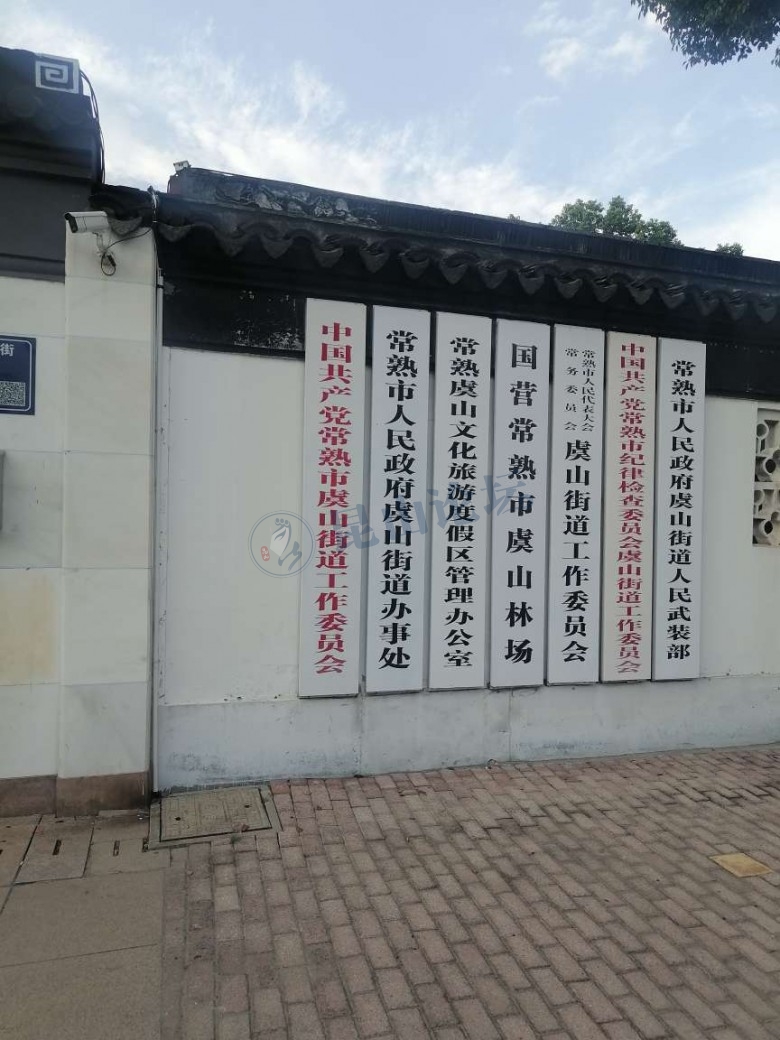 街
中国共产党常熟市虞山街道工作委员会
常熟市人民政府虞山街道办事处
常熟虞山文化旅游度假区管理办公室
国营常熟市虞山林场
常熟市人民代表大会
常务委员会
虞山街道工作委员会
中国共产党常熟市纪律检查委员会虞山街道工作委员会
常熟市人民政府虞山街道人民武装部
昆山论坛